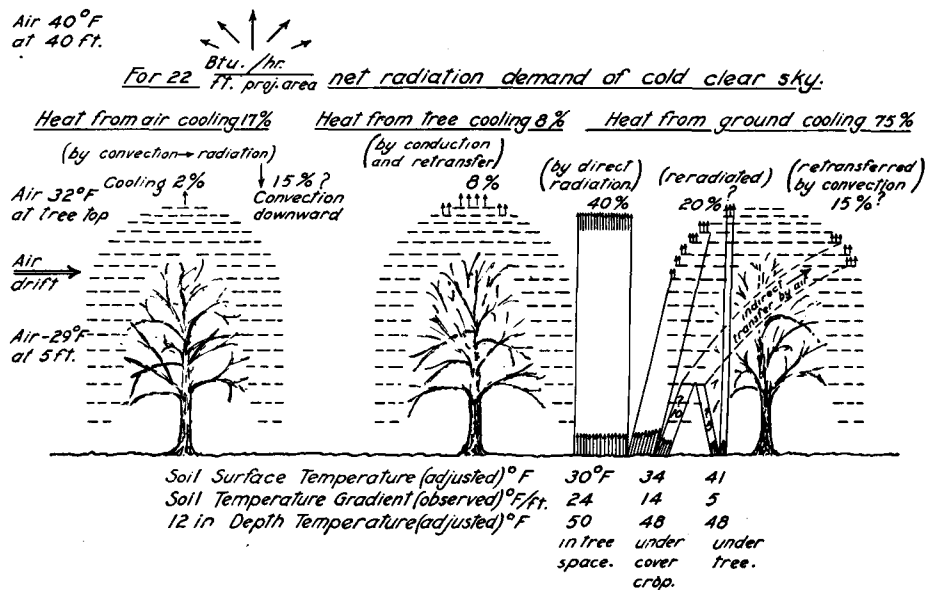 Air 40°F
at 40 ft.
For 22 Btu./hr. ft. proj. area net radiation demand of cold clear sky.
Heat from air cooling 17%
(by convection→radiation)
Cooling 2%
15%?
Convection
downward
Heat from tree cooling 8%
(by conduction
and retransfer)
8%
Heat from ground cooling 75%
(by direct
radiation)
40%
(reradiated)
20%?
(retransferred
by convection)
15%?
Air 32°F
at tree top
Air
drift
Air-29°F
at 5 ft.
indirect
transfer by air
?
10
Soil Surface Temperature (adjusted)°F 30°F 34 41
Soil Temperature Gradient (observed)°F/ft. 24 14 5
12 in Depth Temperature (adjusted)°F 50 48 48
in tree
space.
under
cover
crop.
under
tree.